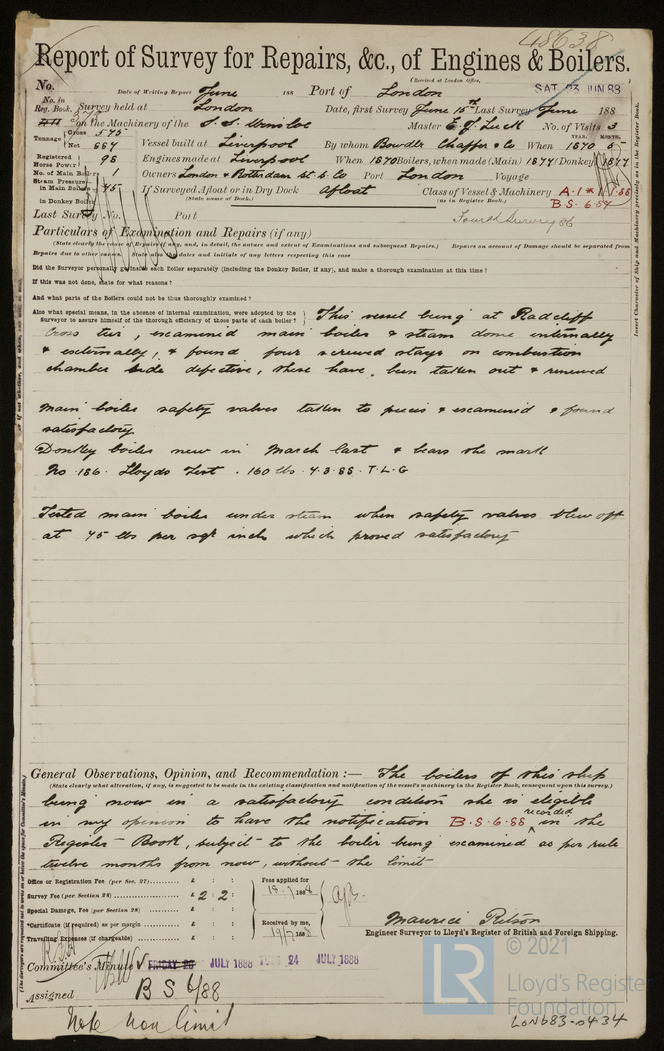 48638
Report of Survey for Repairs, &c., of Engines & Boilers.
(Received at London Office,
No. Date of Writing Report June 188 Port of London SAT. 23 JUN 88
No. in Reg. Book. Survey held at London Date, first Survey June 15th Last Survey June 188
on the Machinery of the S.S. Winsloe Master E. J. Luck No. of Visits 3
Tonnage Gross 575 Net 557 Vessel built at Liverpool By whom Bowdler Chaffer & Co When 1870 YEAR. MONTH. 5
Registered Horse Power 98 Engines made at Liverpool When 1870 Boilers, when made (Main) 1877 (Donkey) 1877
No. of Main Boilers 1 Owners London & Rotterdam St. S. Co Port London Voyage
Steam Pressure in Main Boilers 45 If Surveyed Afloat or in Dry Dock afloat Class of Vessel & Machinery A.1*1.1.88
(State name of Dock.) (as in Register Book.)
in Donkey Boiler B.S. 6.87
Last Survey No. Port Fourth Survey 86
Particulars of Examination and Repairs (if any)
(State clearly the cause of Repairs if any, and, in detail, the nature and extent of Examinations and subsequent Repairs.) Repairs on account of Damage should be separated from
Repairs due to other causes. State also the dates and initials of any letters respecting this case
Did the Surveyor personally go inside each Boiler separately (including the Donkey Boiler, if any), and make a thorough examination at this time?
If this was not done, state for what reasons?
And what parts of the Boilers could not be thus thoroughly examined?
Also what special means, in the absence of internal examination, were adopted by the Surveyor to assure himself of the thorough efficiency of those parts of each boiler? This vessel being at Radcliff
Cross tier, examined main boiler & steam dome internally
& externally, & found four screwed stays on combustion
chamber side defective, these have been taken out & renewed
Main boiler safety valves taken to pieces & examined & found
satisfactory
Donkey boiler new in March last & bears the mark
No 186. Lloyds Test. 160 lbs. 4.3.88. T.L.G
Tested main boiler under steam when safety valves blew off
at 45 lbs per sqr inch which proved satisfactory
General Observations, Opinion, and Recommendation:— The boilers of this ship
(State clearly what alteration, if any, is suggested to be made in the existing classification and notification of the vessel's machinery in the Register Book, consequent upon this survey.)
being now in a satisfactory condition she is eligible
in my opinion to have the notification B.S.6.88 recorded in the
Register Book, subject to the boiler being examined as per rule
twelve months from now, without the limit
Office or Registration Fee (per Sec. 27) £ : :
Survey Fee (per Section 28) £ 2 : 2 :
Special Damage Fee (per Section 28) £ : :
*Certificate (if required) as per margin £ : :
Travelling Expenses (if chargeable) £ : :
Fees applied for
18/7 1888
Received by me,
19/7 1888
Maurice Ritson
Engineer Surveyor to Lloyd's Register of British and Foreign Shipping.
Committee's Minute FRIDAY 20 JULY 1888 TUES. 24 JULY 1888
Assigned B S 6/88
Note Non limit
Insert Character of Ship and Machinery precisely as in the Register Book.
© 2021
LR
Lloyd's Register
Foundation
LON683-0434